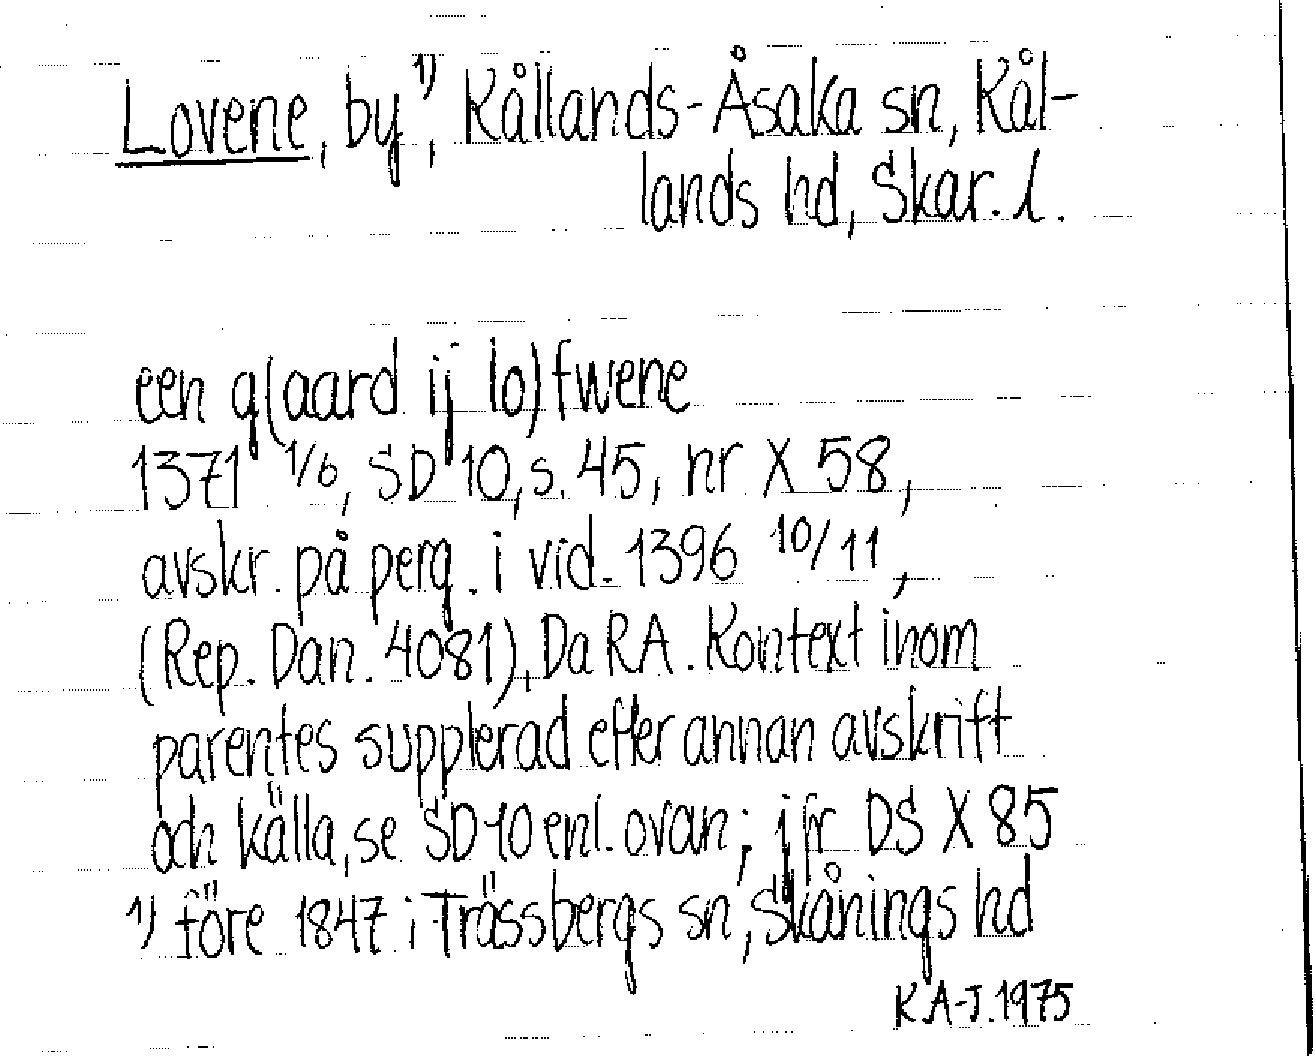 Lovene, by¹⁾, Kållands-Åsaka sn, Kål-
lands hd, Skar. l.
een g(aard ij lo)fwene
1371 1/6, SD 10, s. 45, nr X 58,
avskr. på perg. i vid. 1396 10/11,
(Rep. Dan. 4081), Da RA. Kontext inom
parentes supplerad efter annan avskrift
och källa, se SD 10 enl. ovan; jfr DS X 85
¹⁾ före 1847 i Trässbergs sn, Skånings hd
K A-J. 1975